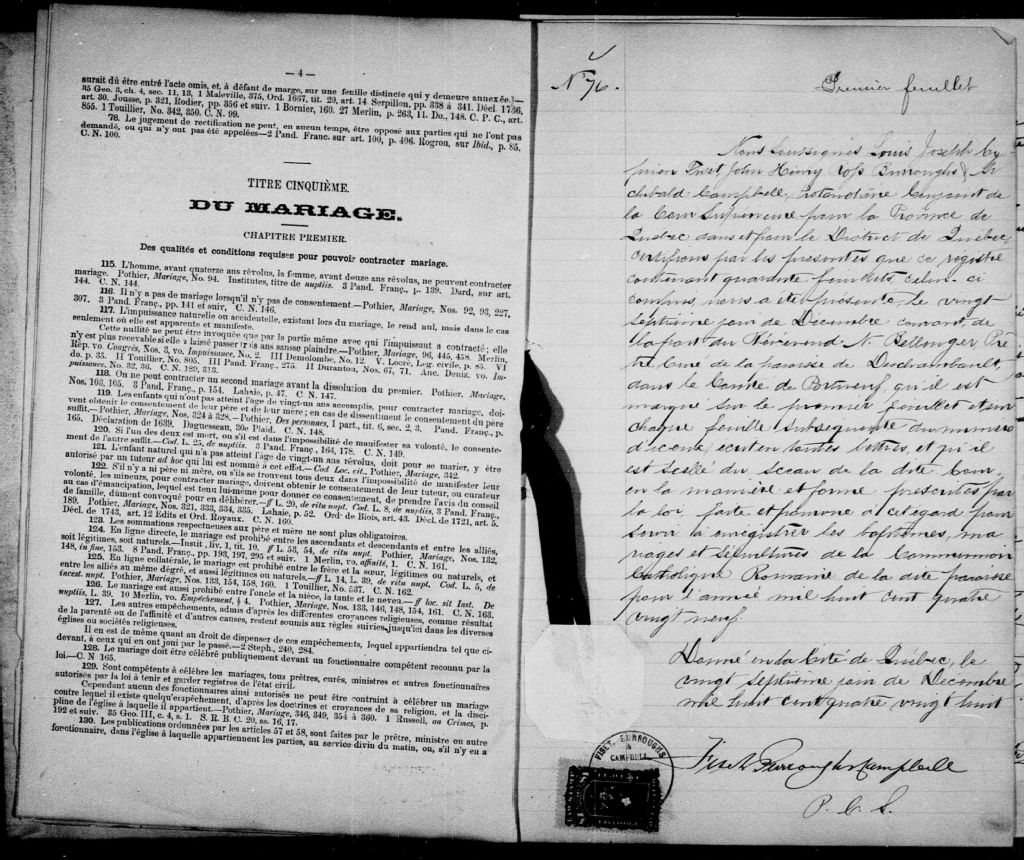 — 4 —
aurait dû être entré l'acte omis, et, à défaut de marge, sur une feuille distincte qui y demeure annexée.—
35 Geo. 3, ch. 4, sec. 11, 13, 1 Maleville, 375, Ord. 1667, tit. 20, art. 14 Serpillon, pp. 338 à 341. Décl. 1736,
art. 30. Jousse, p. 321, Rodier, pp. 356 et suiv. 1 Bornier, 160. 27 Merlin, p. 263, 11. Do., 148. C. P. C., art.
855. 1 Touillier, No. 342, 350. C. N. 99.
78. Le jugement de rectification ne peut, en aucun temps, être opposé aux parties qui ne l'ont pas
demandé, ou qui n'y ont pas été appelées—2 Pand. Franc. sur art. 100, p. 406. Rogron, sur Ibid., p. 85.
C. N. 100.
TITRE CINQUIÈME.
DU MARIAGE.
CHAPITRE PREMIER.
Des qualités et conditions requises pour pouvoir contracter mariage.
115. L'homme, avant quatorze ans révolus, la femme, avant douze ans révolus, ne peuvent contracter
mariage. Pothier, Mariage, No. 94. Institutes, titre de nuptiis. 3 Pand. Franç., p. 139. Dard, sur art.
144. C. N. 144.
116. Il n'y a pas de mariage lorsqu'il n'y pas de consentement.—Pothier, Mariage, Nos. 92, 93, 227,
307. 3 Pand. Franç., pp. 141 et suiv, C. N. 146.
117. L'impuissance naturelle ou accidentelle, existant lors du mariage, le rend nul, mais dans le cas
seulement où elle est apparente et manifeste.
Cette nullité ne peut être invoquée que par la partie même avec qui l'impuissant a contracté; elle
n'y est plus recevable si elle a laissé passer trois ans sans se plaindre.—Pothier, Mariage, 96, 445, 458. Merlin,
Rép. vo. Congrès, Nos. 3, vo. Impuissance, No. 2. III Demolombe, No. 12. V. Locré, Leg. civile, p. 85. VI
do. p. 35. II Touillier, No. 805. III Pand. Franç., 275. II Duranton, Nos. 67, 71. Anc. Deniz. vo. Im-
puissance, No. 32, 36. C. N. 189, 313.
118. On ne peut contracter un second mariage avant la dissolution du premier. Pothier, Mariage,
Nos. 103, 105. 3 Pand. Franç., p. 154. Lahaie, p. 47. C. N. 147.
119. Les enfants qui n'ont pas atteint l'âge de vingt-un ans accomplis, pour contracter mariage, doi-
vent obtenir le consentement de leur père et de leur mère; en cas de dissentiment le consentement du père
suffit.—Pothier, Mariage, Nos. 324 à 328.—Pothier, Des personnes, 1 part., tit. 6, sec. 2, 3. Pand. Franç., p.
165. Déclaration de 1639. Daguesseau, 30e Plaid. C. N. 148.
120. Si l'un des deux est mort, ou s'il est dans l'impossibilité de manifester sa volonté, le consente-
ment de l'autre suffit.—Cod. L. 25, de nuptiis. 3 Pand. Franç., 164, 178. C. N. 149.
121. L'enfant naturel qui n'a pas atteint l'âge de vingt-un ans révolus, doit pour se marier, y être
autorisé par un tuteur ad hoc qui lui est nommé à cet effet.—Cod Loc. cit., Pothier, Mariage, 342.
122. S'il n'y a ni père ni mère, ou s'ils se trouvent tous deux dans l'impossibilité de manifester leur
volonté, les mineurs, pour contracter mariage, doivent obtenir le consentement de leur tuteur, ou curateur
au cas d'émancipation, lequel est tenu lui-même pour donner ce consentement, de prendre l'avis du conseil
de famille, dûment convoqué pour en délibérer.—ff L. 20, de ritu nupt. Cod. L. 8, de nuptiis, 3 Pand. Franç.,
189. Pothier, Mariage, Nos. 321, 333, 334, 335. Lahaie, p. 52. Ord. de Blois, art. 43. Décl. de 1721, art. 5.
Décl. de 1743, art. 12 Edits et Ord. Royaux. C. N. 160.
123. Les sommations respectueuses aux père et mère ne sont plus obligatoires.
124. En ligne directe, le mariage est prohibé entre les ascendants et descendants et entre les alliés,
soit légitimes, soit naturels.—Instit, liv. 1, tit. 10. ff L. 53, 54, de ritu nupt. Pothier, Mariage, Nos. 132,
148, in fine, 153. 8 Pand. Franç., pp. 193, 197, 295 et suiv. 1 Merlin, vo. affinité, 1. C. N. 161.
125. En ligne collatérale, le mariage est prohibé entre le frère et la sœur, légitimes ou naturels, et
entre les alliés au même dégré, et aussi légitimes ou naturels.—ff L. 14, L. 39, de ritu nupt. Cod. L. 5, de
incest. nupt. Pothier, Mariage, Nos. 133, 154, 158, 160. 1 Touillier, No. 537. C. N. 162.
126. Le mariage est aussi prohibé entre l'oncle et la nièce, la tante et le neveu.—ff loc. sit Inst. De
nuptiis, L. 39. 10 Merlin, vo. Empêchement, § 4. Pothier, Mariage, Nos. 133, 146, 148, 154, 161. C. N. 163.
127. Les autres empêchements, admis d'après les différentes croyances religieuses, comme résultat
de la parenté ou de l'affinité et d'autres causes, restent soumis aux règles suivies jusqu'ici dans les diverses
églises ou sociétés religieuses.
Il en est de même quant au droit de dispenser de ces empêchements, lequel appartiendra tel que ci-
devant, à ceux qui en ont joui par le passé.—2 Steph., 240, 284.
128. Le mariage doit être célébré publiquement devant un fonctionnaire compétent reconnu par la
loi.—C. N 165.
129. Sont compétents à célébre les mariages, tous prêtres, curés, ministres et autres fonctionnaires
autorisés par la loi à tenir et garder registres de l'état civil.
Cependant aucun des fonctionnaires ainsi autorisés ne peut être contraint à célébrer un mariage
contre lequel il existe quelqu'empêchement, d'après les doctrines et croyances de sa religion, et la disci-
pline de l'église à laquelle il appartient.—Pothier, Mariage, 346, 349, 354 à 360. 1 Russell, ou Crimes, p.
192 et suiv. 35 Geo. III, c. 4, s. 1. S. R. B. C. 20, ss. 16, 17.
130. Les publications ordonnées par les articles 57 et 58, sont faites par le prêtre, ministre ou autre
fonctionnaire, dans l'église à laquelle appartiennent les parties, au service divin du matin, ou, s'il n'y en a
No 76.
Premier feuillet
Nous soussignés Louis Joseph Cy
prien Fiset, John Henry Ross Burroughs & Ar
chibald Campbell, Protonotaire Conjoint de
la Cour Supérieure pour la Province de
Québec, dans et pour le District de Québec,
certifions par les présentes que ce registre
contenant quarante feuillets celui-ci
compris, nous a été présenté, le vingt
septième jour de Décembre courant, de
la part du Révérend N. Bellenger Prê
tre Curé de la paroisse de Deschambault,
dans le Comté de Portneuf, qu'il est
marqué sur le premier feuillet et sur
chaque feuille subséquente du numéro
d'icelui, écrit en toutes lettres, et qu'il
est scellé du sceau de la dite Cour,
en la manière et forme prescrites par
la loi, faite et pourvue à cet égard pour
servir à enregistrer les baptêmes, ma
riages et sépultures de la Communion
Catholique Romaine de la dite paroisse
pour l'année mil huit cent quatre
vingt neuf.
Donné en la Cité de Québec, le
vingt septième jour de Décembre
mil huit cent quatre vingt huit
FISET, BURROUGHS
&
CAMPBELL
Fiset Burroughs Campbell
P. C. S.